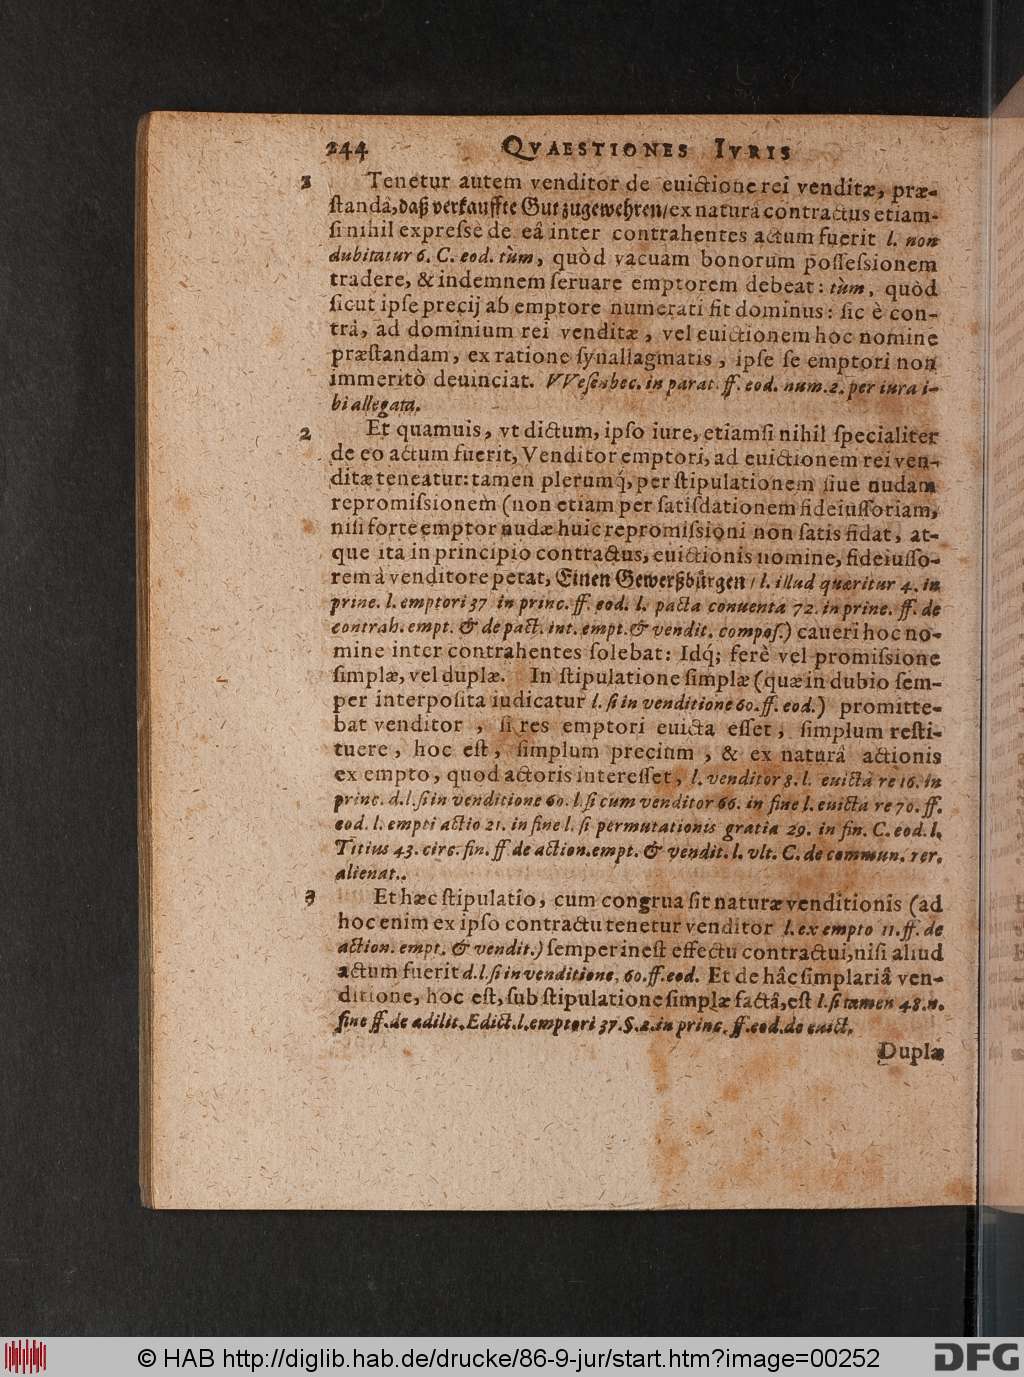 244 QVAESTIONES IVRIS
1 Tenetur autem venditor de euictione rei venditæ, præ-
ſtandâ, daß verkauffte Gut zugewehren/ ex naturâ contractus etiam-
ſi nihil expreſsè de eâ inter contrahentes actum fuerit l. non
dubitatur 6. C. eod. tùm, quòd vacuam bonorum poſſeſsionem
tradere, & indemnem ſeruare emptorem debeat: tùm, quòd
ſicut ipſe precij ab emptore numerati fit dominus: ſic è con-
trâ, ad dominium rei venditæ, vel euictionem hoc nomine
præſtandam, ex ratione ſynallagmatis, ipſe ſe emptori non
immeritò deuinciat. VVeſenbec. in parat. ff. eod. num. 2. per iura i-
bi allegata.
2 Et quamuis, vt dictum, ipſo iure, etiamſi nihil ſpecialiter
de eo actum fuerit, Venditor emptori, ad euictionem rei ven-
ditæ teneatur: tamen plerumq́, per ſtipulationem ſiue nudam
repromiſsionem (non etiam per ſatiſdationem fideiuſſoriam,
niſi forte emptor nudæ huic repromiſsioni non ſatis fidat, at-
que ita in principio contractus, euictionis nomine, fideiuſſo-
rem à venditore petat, Einen Gewerßbürgen / l. illud quæritur 4. in
princ. l. emptori 37 in princ. ff. eod. l. pacta conuenta 72. in princ. ff. de
contrah. empt. & de pact. int. empt. & vendit. compoſ.) caueri hoc no-
mine inter contrahentes ſolebat: Idq́; ferè vel promiſsione
ſimplæ, vel duplæ. In ſtipulatione ſimplæ (quæ in dubio ſem-
per interpoſita iudicatur l. ſi in venditione 60. ff. eod.) promitte-
bat venditor, ſi res emptori euicta eſſet, ſimplum reſti-
tuere, hoc eſt, ſimplum precium, & ex naturâ actionis
ex empto, quod actoris intereſſet, l. venditor 8. l. euictâ re 16. in
princ. d. l. ſi in venditione 60. l. ſi cum venditor 66. in fine l. euicta re 70. ff.
eod. l. empti actio 21. in fine l. ſi permutationis gratia 29. in fin. C. eod. l.
Titius 43. circ. fin. ff de action. empt. & vendit. l. vlt. C. de commun. rer.
alienat..
3 Et hæc ſtipulatio, cum congrua ſit naturæ venditionis (ad
hoc enim ex ipſo contractu tenetur venditor l. ex empto 11. ff. de
action. empt. & vendit.) ſemper ineſt effectu contractui, niſi aliud
actum fuerit d. l. ſi in venditione, 60. ff. eod. Et de hâc ſimplariâ ven-
ditione, hoc eſt, ſub ſtipulatione ſimplæ factâ, eſt l. ſi tamen 48. n.
fine ff. de ædilit. Edict. l. emptori 37. §. 2. in princ. ff. eod. de euict.
Duplæ
© HAB http://diglib.hab.de/drucke/86-9-jur/start.htm?image=00252
DFG